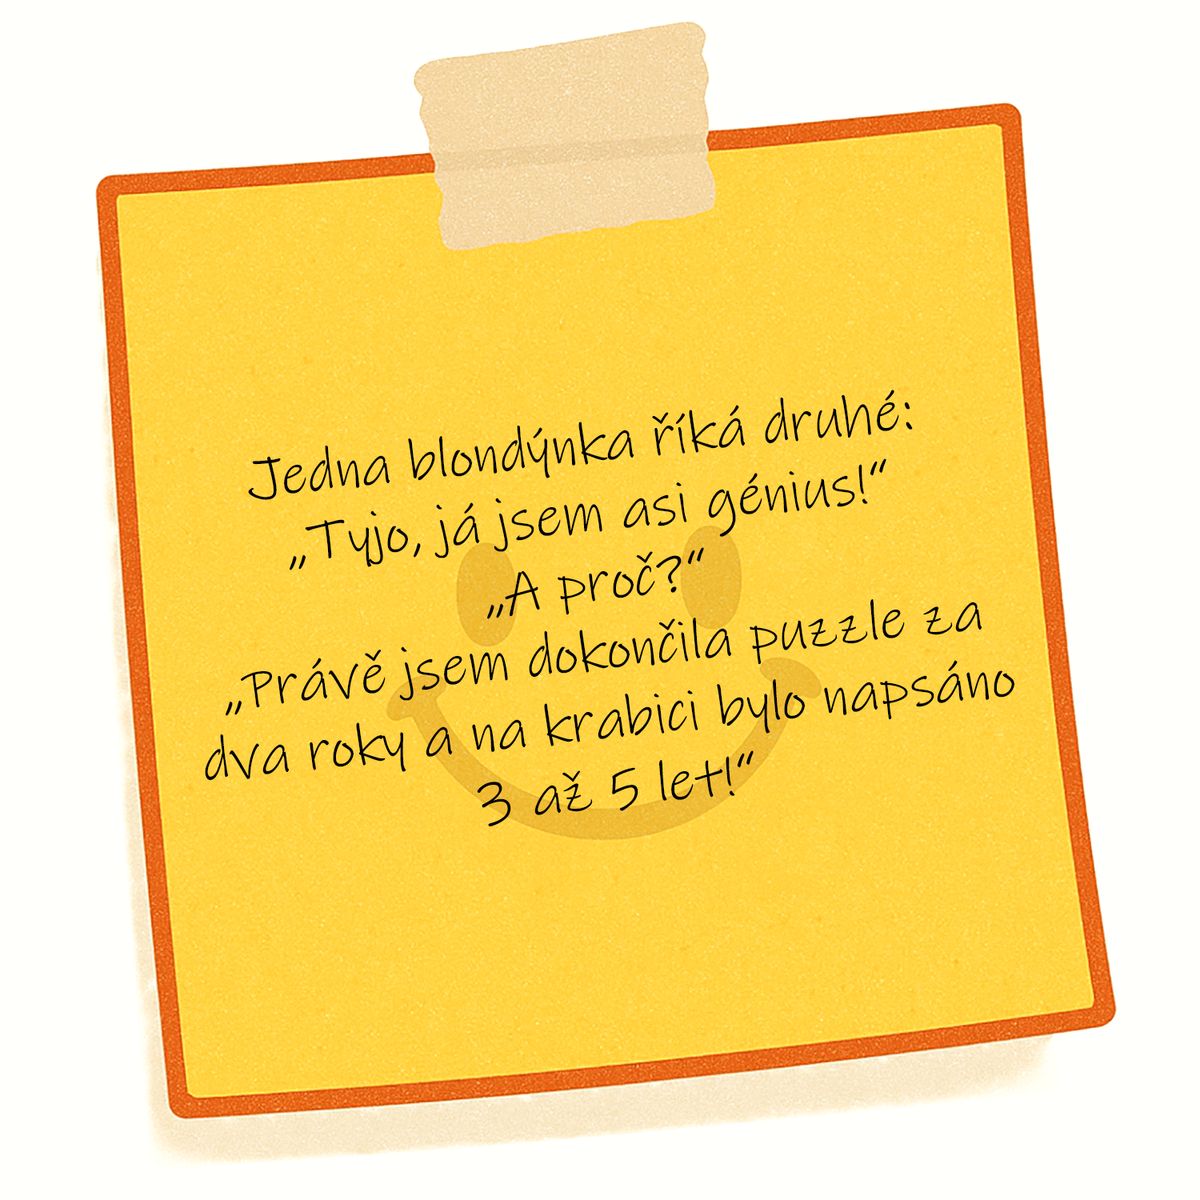 Jedna blondýnka říká druhé:
„Tyjo, já jsem asi génius!“
„A proč?“
„Právě jsem dokončila puzzle za
dva roky a na krabici bylo napsáno
3 až 5 let!“